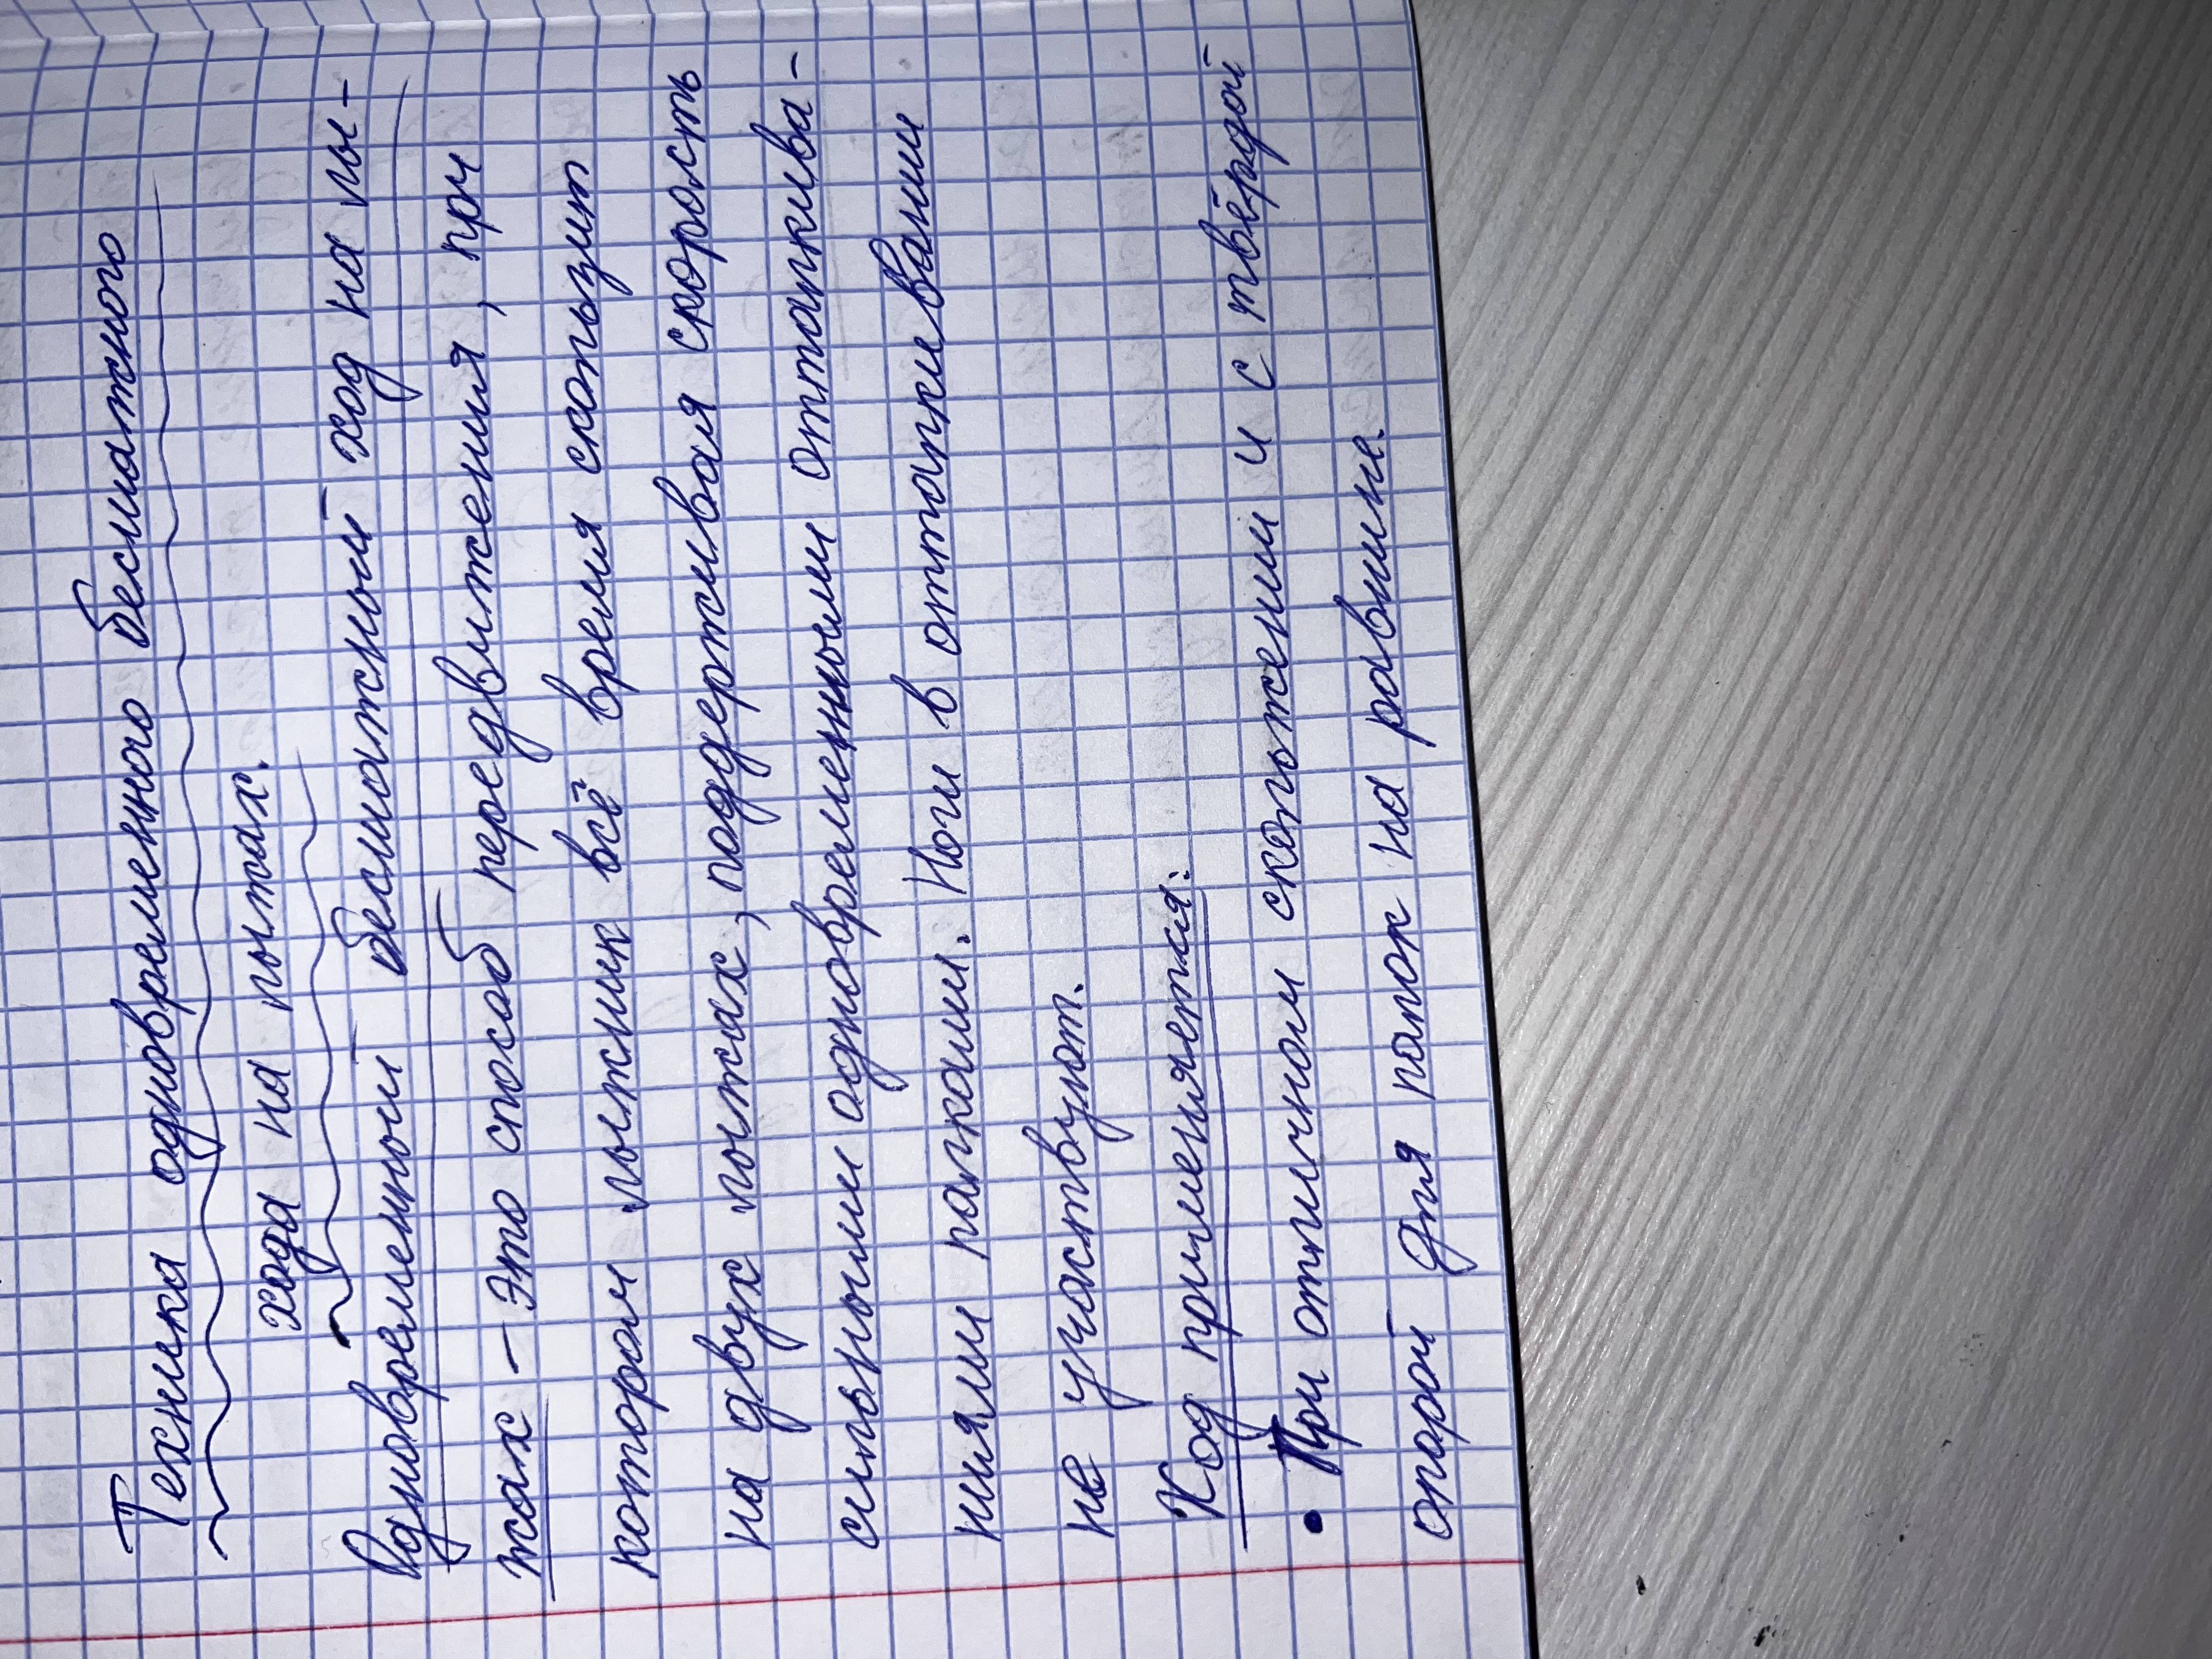 Техника одновременного бесшажного
хода на лыжах.
Одновременный бесшажный ход на лы-
жах - это способ передвижения, при
котором лыжник всё время скользит
на двух лыжах, поддерживая скорость
сильными одновременными отталкива-
ниями палками. Ноги в отталкивании
не участвуют.
Ход применяется:
• При отличном скольжении и с твёрдой
опорой для палок на равнине.